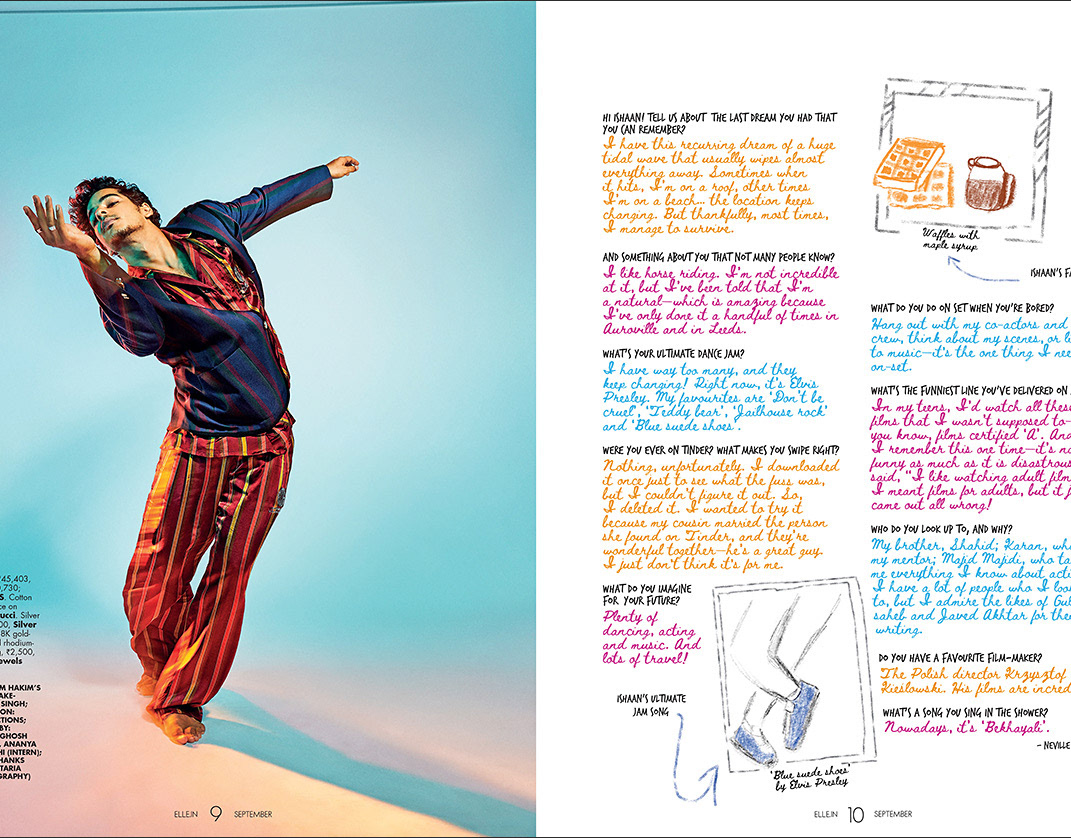 ₹45,403,
0,730;
S. Cotton
ce on
ucci. Silver
00, Silver
8K gold-
d rhodium-
g, ₹2,500,
ewels
M HAKIM'S
AKE-
SINGH;
ON:
CTIONS;
BY:
GHOSH
, ANANYA
HI (INTERN);
HANKS
TARIA
GRAPHY)
ELLE.IN 9 SEPTEMBER
HI ISHAAN! TELL US ABOUT THE LAST DREAM YOU HAD THAT
YOU CAN REMEMBER?
I have this recurring dream of a huge
tidal wave that usually wipes almost
everything away. Sometimes when
it hits, I'm on a roof, other times
I'm on a beach... the location keeps
changing. But thankfully, most times,
I manage to survive.
AND SOMETHING ABOUT YOU THAT NOT MANY PEOPLE KNOW?
I like horse riding. I'm not incredible
at it, but I've been told that I'm
a natural—which is amazing because
I've only done it a handful of times in
Auroville and in Leeds.
WHAT'S YOUR ULTIMATE DANCE JAM?
I have way too many, and they
keep changing! Right now, it's Elvis
Presley. My favourites are 'Don't be
cruel', 'Teddy bear', 'Jailhouse rock'
and 'Blue suede shoes'.
WERE YOU EVER ON TINDER? WHAT MAKES YOU SWIPE RIGHT?
Nothing, unfortunately. I downloaded
it once just to see what the fuss was,
but I couldn't figure it out. So,
I deleted it. I wanted to try it
because my cousin married the person
she found on Tinder, and they're
wonderful together—he's a great guy.
I just don't think it's for me.
WHAT DO YOU IMAGINE
FOR YOUR FUTURE?
Plenty of
dancing, acting
and music. And
lots of travel!
ISHAAN'S ULTIMATE
JAM SONG
'Blue suede shoes'
by Elvis Presley
Waffles with
maple syrup
ISHAAN'S FA
WHAT DO YOU DO ON SET WHEN YOU'RE BORED?
Hang out with my co-actors and
crew, think about my scenes, or li
to music—it's the one thing I nee
on-set.
WHAT'S THE FUNNIEST LINE YOU'VE DELIVERED ON
In my teens, I'd watch all these
films that I wasn't supposed to—
you know, films certified 'A'. And
I remember this one time—it's no
funny as much as it is disastrous
said, "I like watching adult film
I meant films for adults, but it j
came out all wrong!
WHO DO YOU LOOK UP TO, AND WHY?
My brother, Shahid; Karan, who
my mentor; Majid Majidi, who ta
me everything I know about acti
I have a lot of people who I loo
to, but I admire the likes of Gul
saheb and Javed Akhtar for the
writing.
DO YOU HAVE A FAVOURITE FILM-MAKER?
The Polish director Krzysztof
Kieslowski. His films are incred
WHAT'S A SONG YOU SING IN THE SHOWER?
Nowadays, it's 'Bekhayali'.
– NEVILLE
ELLE.IN 10 SEPTEMBER